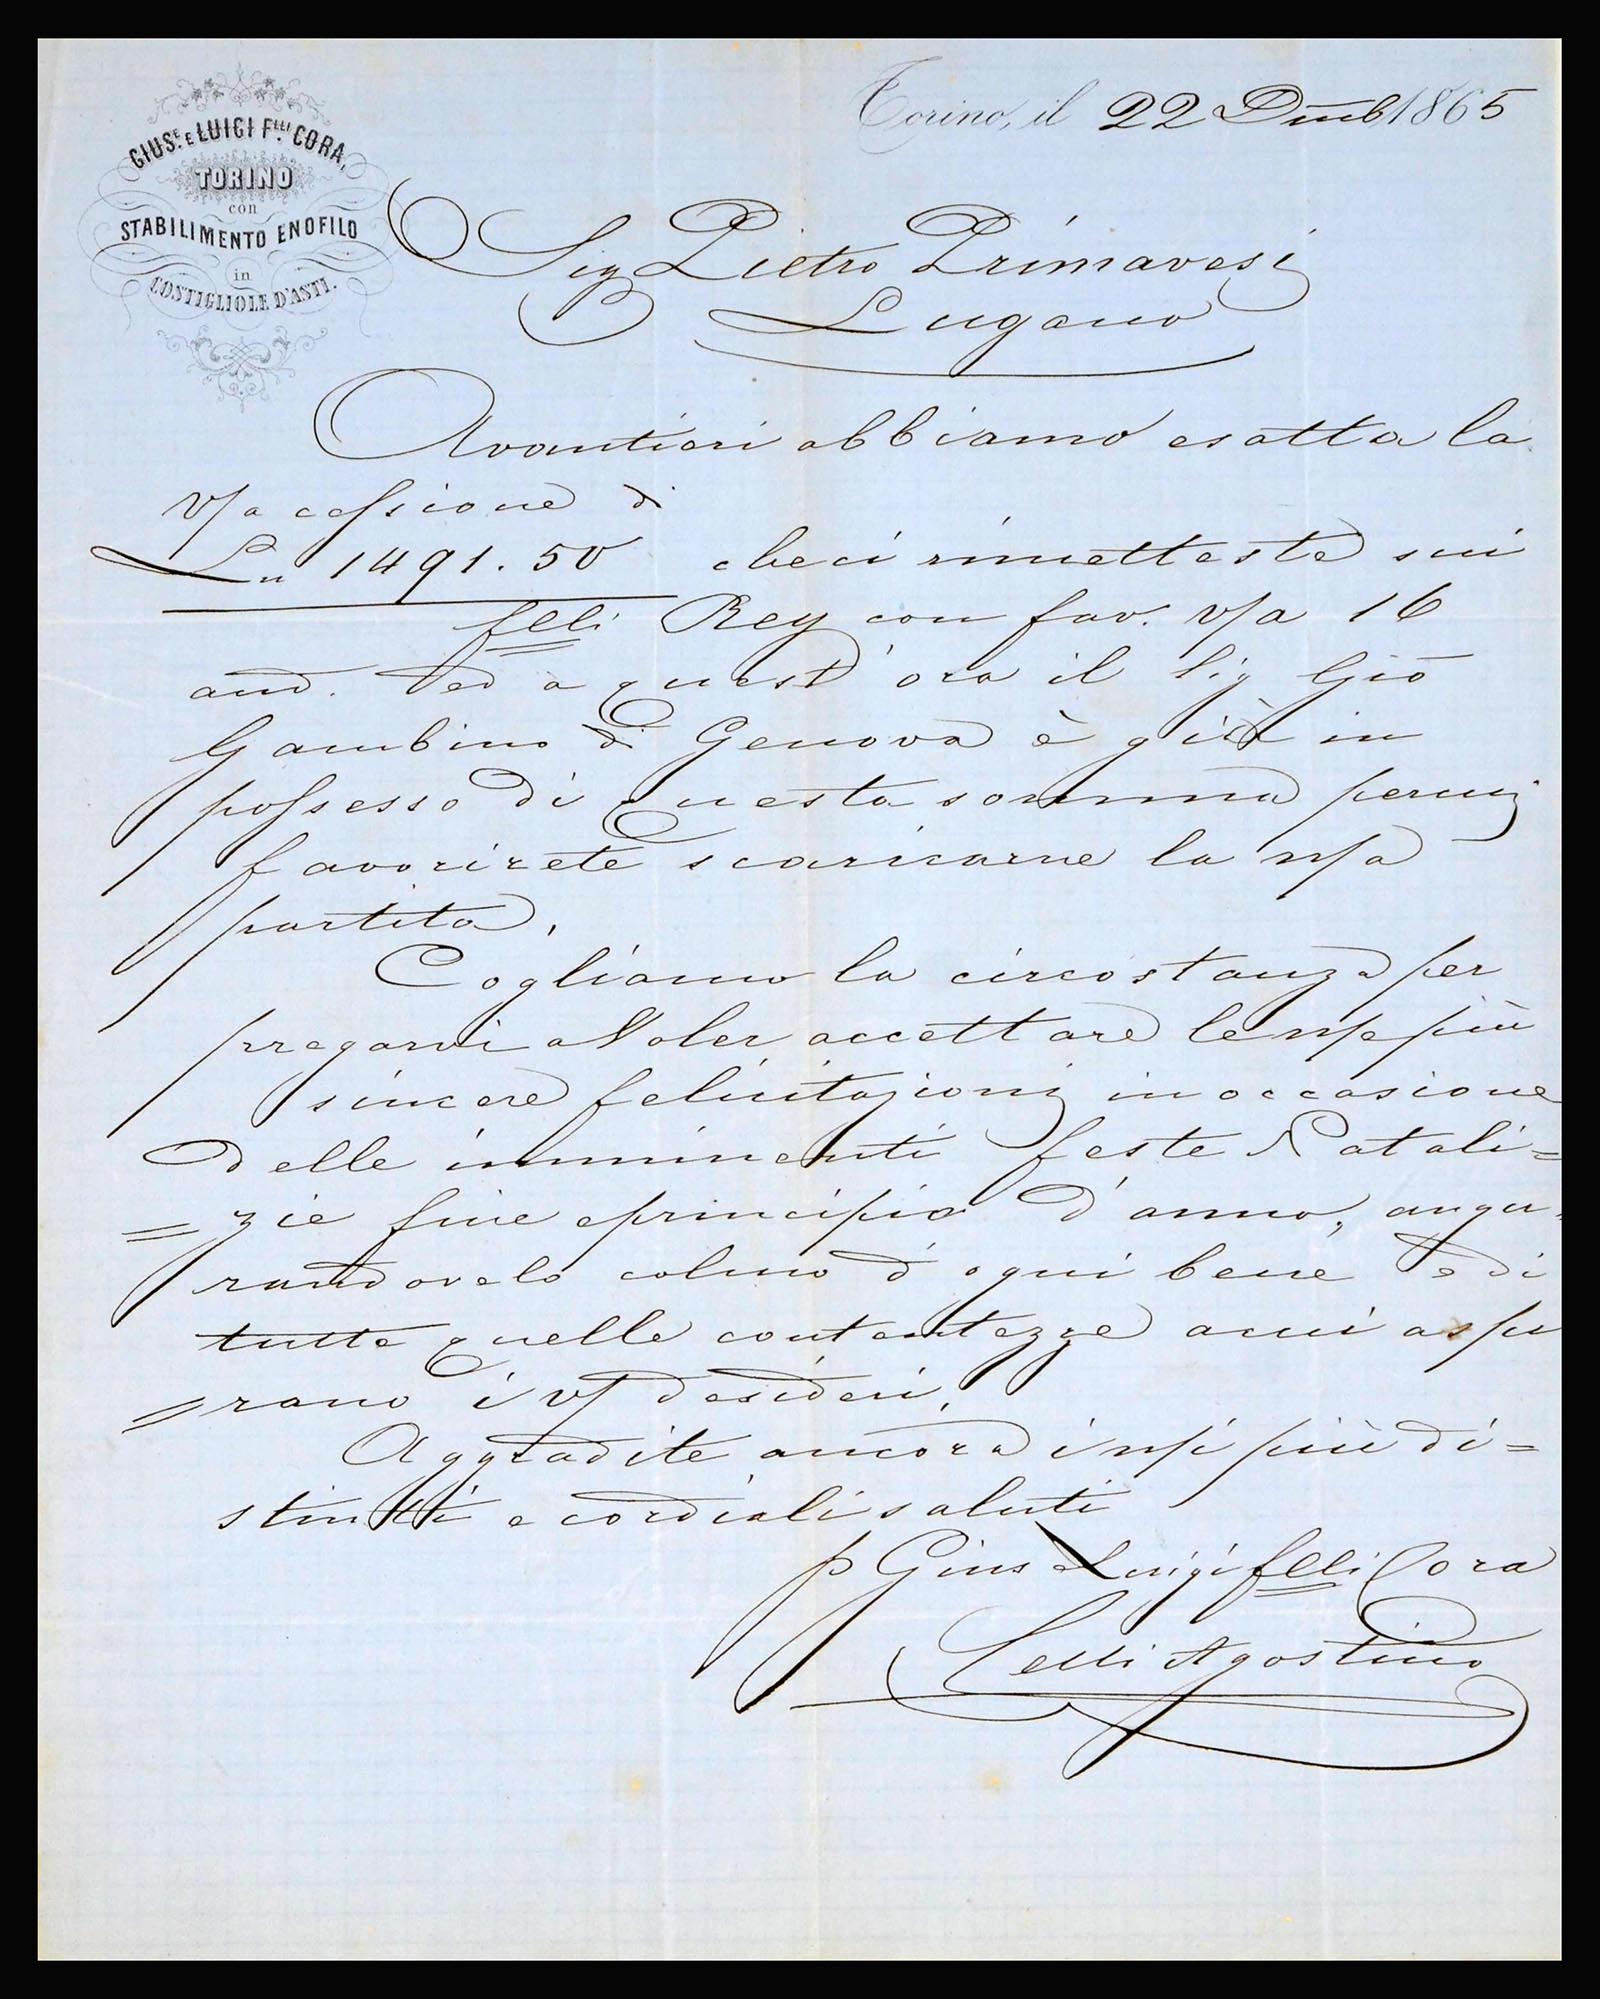 GIUSE. E LUIGI FLLI. CORA,
TORINO
con
STABILIMENTO ENOFILO
in
COSTIGLIOLE D'ASTI.
Torino, il 22 Dmb 1865
Sig Pietro Primavesi
Lugano
Avantieri abbiamo esatta la
V/a cessione di
Ln 1491.50 che ci rimetteste sui
flli Rey con fav. V/a 16
and. ed a quest'ora il Sig Gio
Gambino di Genova è già in
possesso di questa somma percui
favorirete scaricarne la n/a
partita.
Cogliamo la circostanza per
pregarvi a Voler accettare le n/e più
sincere felicitazioni in occasione
delle imminenti feste Natali=
=zie fine e principio d'anno, augu-
randovelo colmo d'ogni bene e di
tutte quelle contentezze a cui aspi
=rano i V/ desideri.
Aggradite ancora i n/i più di=
stinti e cordiali saluti
p Gius e Luigi flli Cora
Agostino